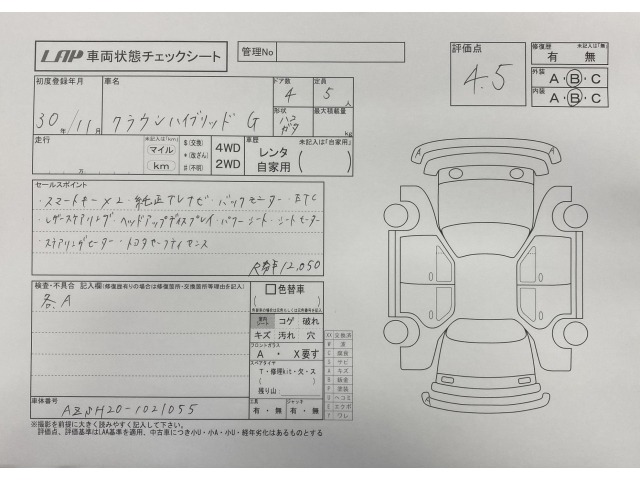 LAA 車両状態チェックシート
管理No
評価点
4.5
修復歴 未記入は「無」
有 無
外装 A・B・C
内装 A・B・C
初度登録年月
30年 / 11月
車名
クラウンハイブリッド G
ドア数
4
定員
5人
形状
最大積載量
kg
走行
未記入は「km」
マイル
km
万
$(交換)
*(改ざん)
#(不明)
4WD
2WD
車歴 未記入は「自家用」
レンタ
自家用
セールスポイント
・スマートキーX2・純正アレナビ・バックモニター・ETC
・レザーステアリング・ヘッドアップディスプレイ・パワーシート・シートヒーター
・ステアリングヒーター・トヨタセーフティセンス
12,050
検査・不具合 記入欄(修復歴有りの場合は修復箇所・交換箇所等理由を記入)
各、A
色替車
車内シート
コゲ 破れ
キズ 汚れ 穴
フロントガラス
A ・ X要す
スペアタイヤ
T・修理kit・欠・ス
残り山:
工具
有・無
ジャッキ
有・無
XX 交換済
W 済
C 腐食
S サビ
A キズ
P 塗装
U ヘコミ
Y ワレ
車体番号
AZSH20-1021055
※撮影を前提に大きく読みやすく記入して下さい。
評価点、評価基準はLAA基準を適用、中古車につき小U・小A・小U・経年劣化はあるものとする
A
A
A
A